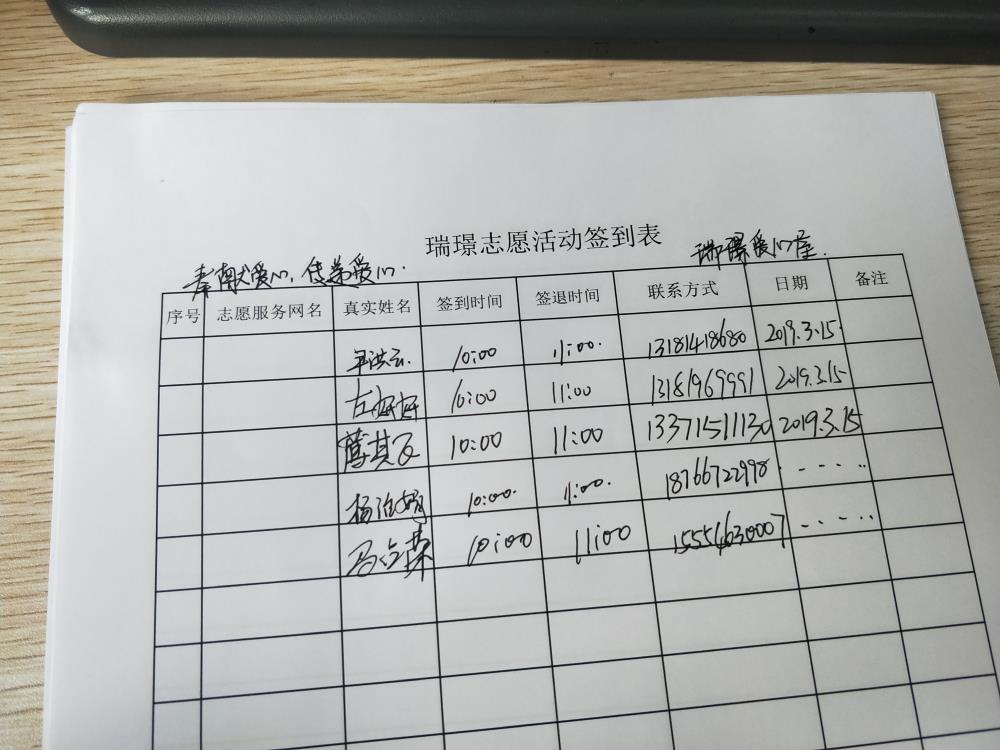 瑞璟志愿活动签到表
奉献爱心,传递爱心. 瑞璟爱心屋.
序号 志愿服务网名 真实姓名 签到时间 签退时间 联系方式 日期 备注
洪云 10:00 11:00. 13181418680 2019.3.15.
左好好 10:00 11:00 13181969991 2019.3.15
其 10:00 11:00 13371511130 2019.3.15
杨 10:00. 11:00. 18766722998 . - - . .
马 10:00 11:00 15554630007 . - . - . .